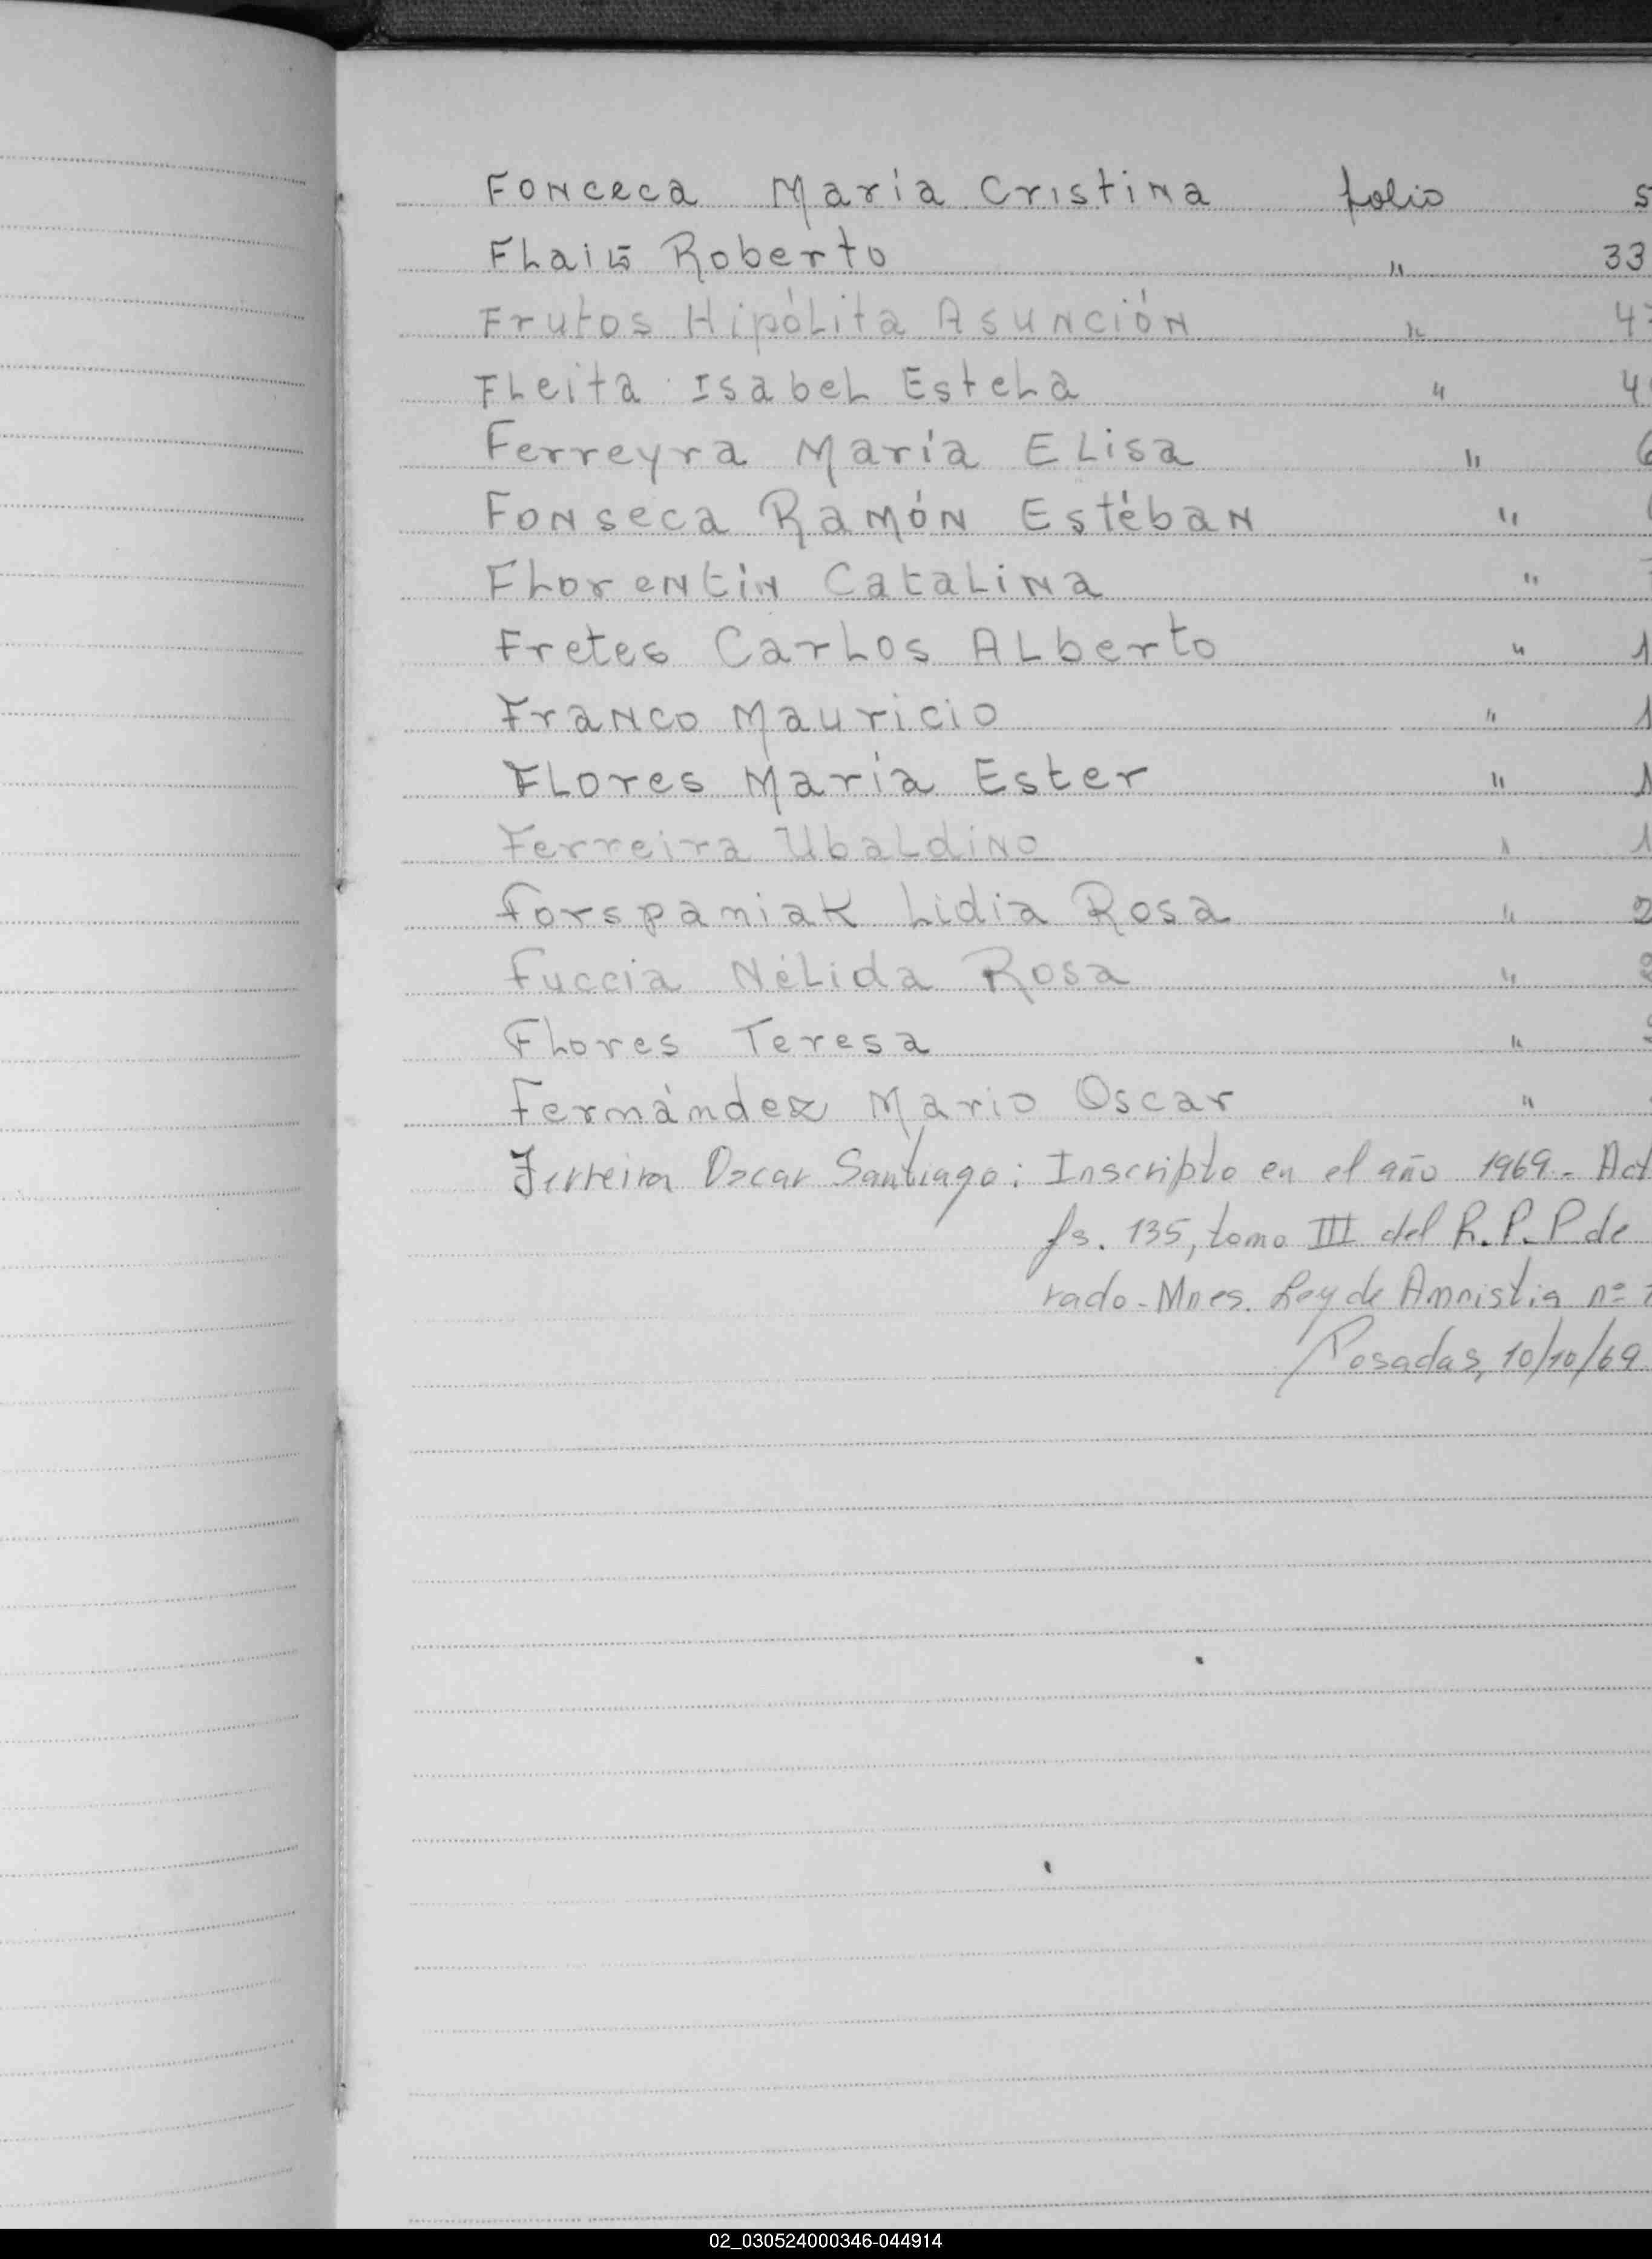 Fonceca María Cristina folio 5
Flais Roberto " 33
Frutos Hipólita Asunción " 4
Fleita Isabel Estela " 4
Ferreyra María Elisa " 6
Fonseca Ramón Estéban "
Florentín Catalina "
Fretes Carlos Alberto " 1
Franco Mauricio " 1
Flores María Ester " 1
Ferreira Ubaldino " 1
Forspaniak Lidia Rosa " 2
Fuccia Nélida Rosa "
Flores Teresa "
Fernández Mario Oscar "
Ferreira Oscar Santiago: Inscripto en el año 1969.- Act
fs. 135, tomo III del R.P.P de
rado - Mnes. Ley de Amnistia nº
Posadas, 10/10/69
02_030524000346-044914